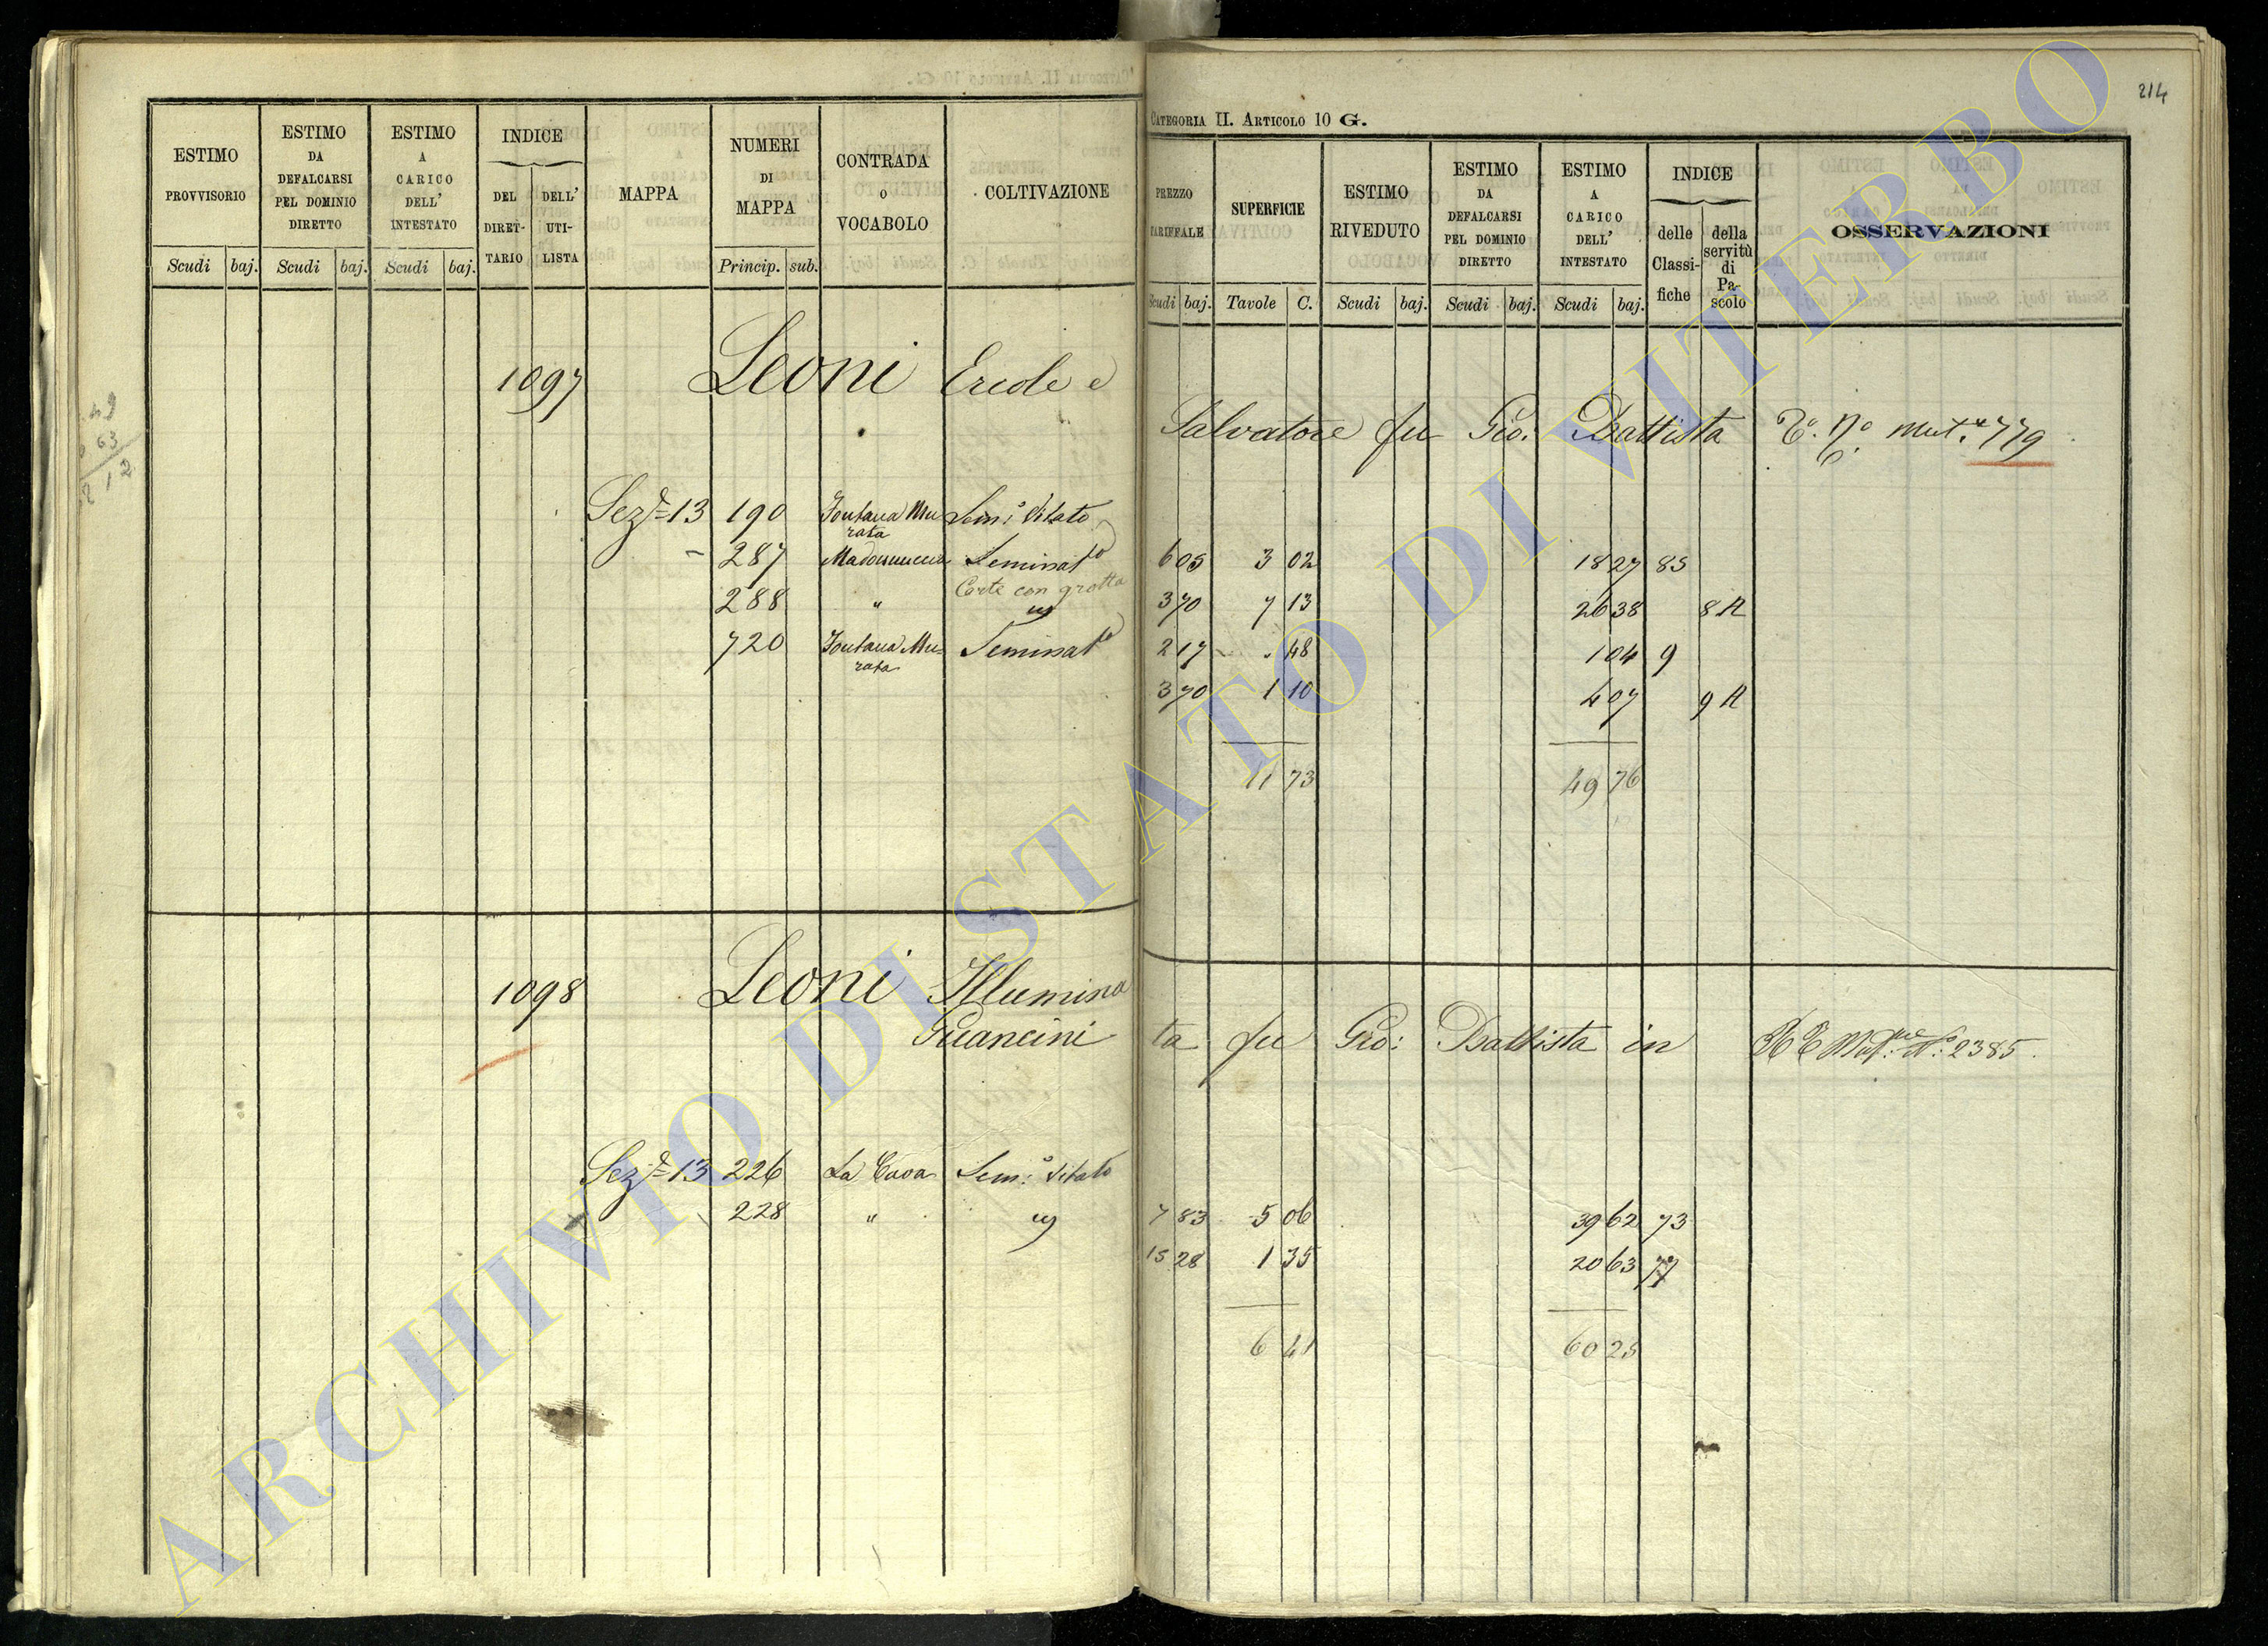 214
CATEGORIA II. ARTICOLO 10 G.
ESTIMO PROVVISORIO
ESTIMO DA DEFALCARSI PEL DOMINIO DIRETTO
ESTIMO A CARICO DELL' INTESTATO
INDICE
DEL DIRETTARIO
DELL' UTILISTA
MAPPA
NUMERI DI MAPPA
CONTRADA O VOCABOLO
COLTIVAZIONE
Scudi baj. Scudi baj. Scudi baj. Princip. sub.
PREZZO TARIFFALE
SUPERFICIE
ESTIMO RIVEDUTO
ESTIMO DA DEFALCARSI PEL DOMINIO DIRETTO
ESTIMO A CARICO DELL' INTESTATO
INDICE
delle Classifiche
della servitù di Pascolo
OSSERVAZIONI
Scudi baj. Tavole C. Scudi baj. Scudi baj. Scudi baj.
1097 Leoni Ercole e
Salvatore fu Gio: Battista
779
Sez.e 13 190 Fontana Murata Sem:o Vitato
605 3 02 18 27 85
287 Madonnuccia Seminato
370 7 13 26 38 8 A
288 " Corte con grotta
217 . 48 1 04 9
720 Fontana Murata Seminato
370 1 10 4 07 9 A
11 73 49 76
1098 Leoni Illumina
Guancini
ta fu Gio: Battista in
2385.
Sez.e 13 226 La Cava Sem:o Vitato
7 83 5 06 39 62 73
228 "
15 28 1 35 20 63 77
6 41 60 25
ARCHIVIO DI STATO DI VITERBO